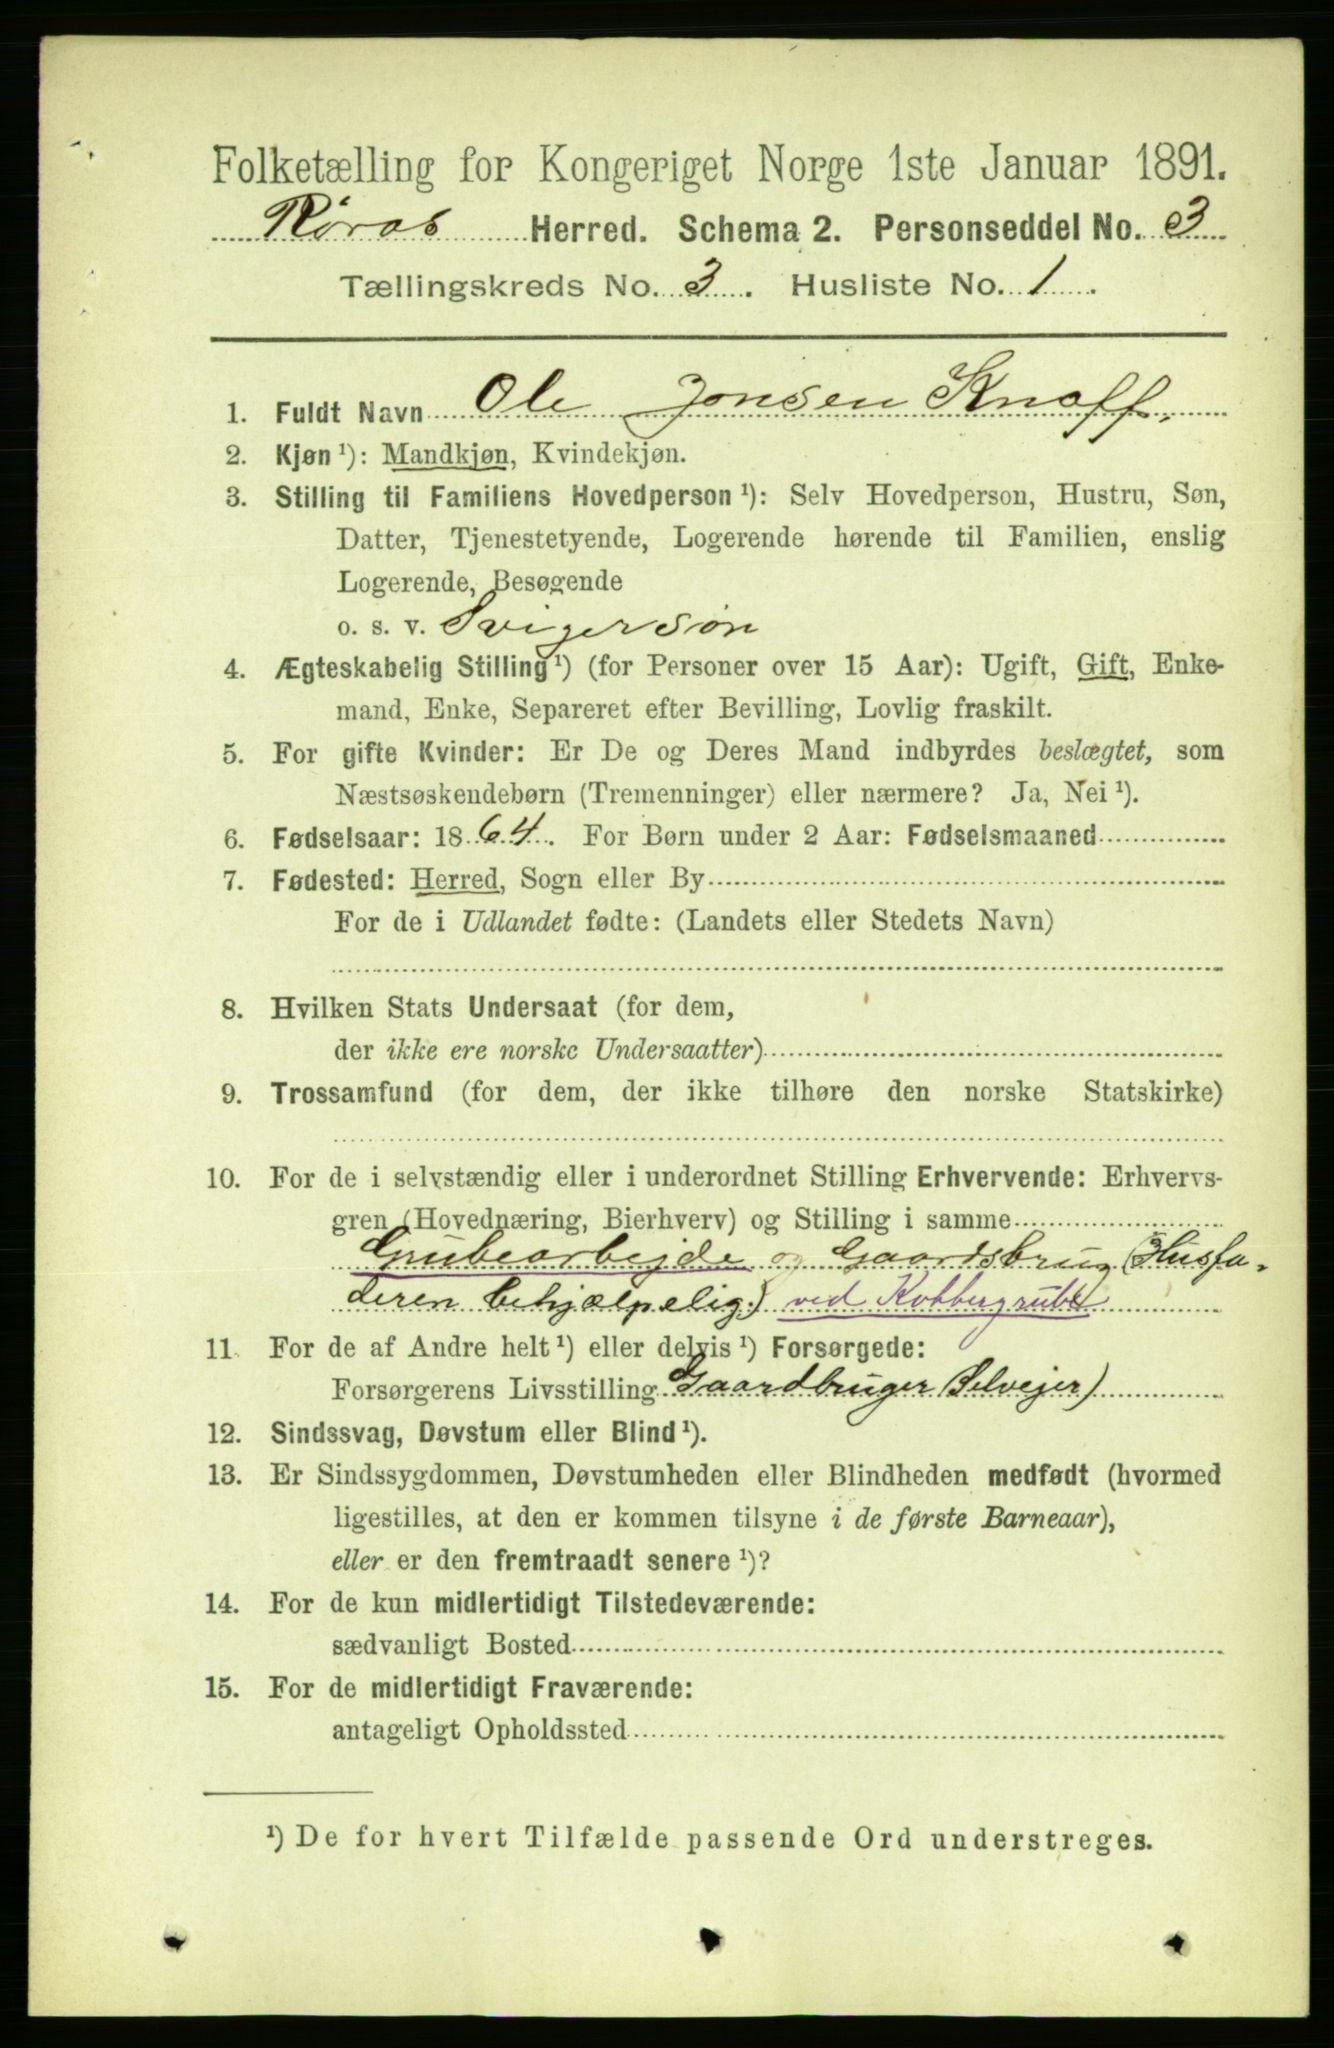 Folketælling for Kongeriget Norge 1ste Januar 1891.
Røros Herred. Schema 2. Personseddel No. 3
Tællingskreds No. 3. Husliste No. 1.
1. Fuldt Navn Ole Jonsen Knoff,
2. Kjøn ¹): Mandkjøn, Kvindekjøn.
3. Stilling til Familiens Hovedperson ¹): Selv Hovedperson, Hustru, Søn,
Datter, Tjenestetyende, Logerende hørende til Familien, enslig
Logerende, Besøgende
o. s. v. Svigersøn
4. Ægteskabelig Stilling ¹) (for Personer over 15 Aar): Ugift, Gift, Enke-
mand, Enke, Separeret efter Bevilling, Lovlig fraskilt.
5. For gifte Kvinder: Er De og Deres Mand indbyrdes beslægtet, som
Næstsøskendebørn (Tremenninger) eller nærmere? Ja, Nei ¹).
6. Fødselsaar: 1864. For Børn under 2 Aar: Fødselsmaaned
7. Fødested: Herred, Sogn eller By
For de i Udlandet fødte: (Landets eller Stedets Navn)
8. Hvilken Stats Undersaat (for dem,
der ikke ere norske Undersaatter)
9. Trossamfund (for dem, der ikke tilhøre den norske Statskirke)
10. For de i selvstændig eller i underordnet Stilling Erhvervende: Erhvervs-
gren (Hovednæring, Bierhverv) og Stilling i samme
Grubearbejde og Gaardsbrug (Husfa-
deren behjælpelig.) ved Kobbergrube
11. For de af Andre helt ¹) eller delvis ¹) Forsørgede:
Forsørgerens Livsstilling Gaardbruger (Selvejer)
12. Sindssvag, Døvstum eller Blind ¹).
13. Er Sindssygdommen, Døvstumheden eller Blindheden medfødt (hvormed
ligestilles, at den er kommen tilsyne i de første Barneaar),
eller er den fremtraadt senere ¹)?
14. For de kun midlertidigt Tilstedeværende:
sædvanligt Bosted
15. For de midlertidigt Fraværende:
antageligt Opholdssted
¹) De for hvert Tilfælde passende Ord understreges.